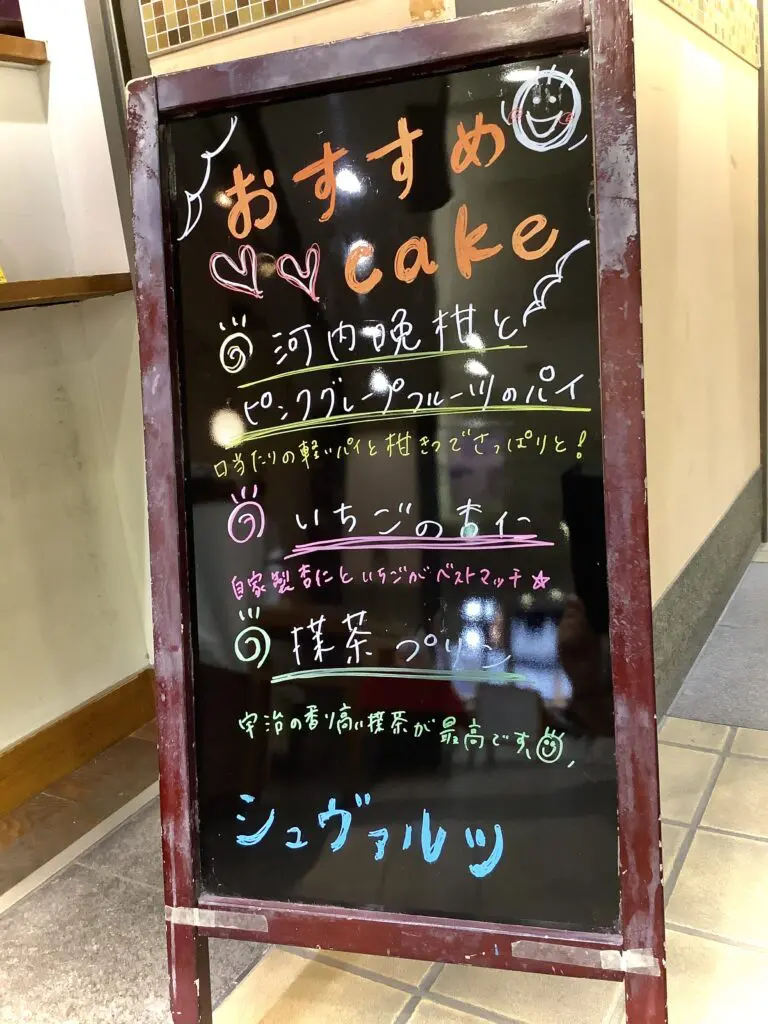 おすすめ
cake
河内晩柑と
ピンクグレープフルーツのパイ
口当たりの軽いパイと柑きつでさっぱりと!
いちごの杏仁
自家製杏仁といちごがベストマッチ☆
抹茶プリン
宇治の香り高い抹茶が最高です。
シュヴァルツ